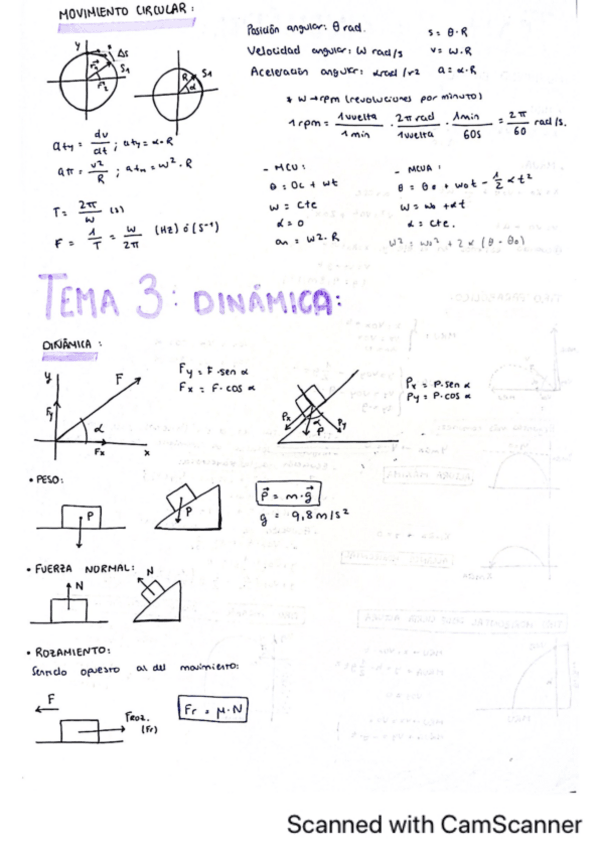 MOVIMIENTO CIRCULAR:
y
Δs
S1
R
S1
α
Posición angular: θ rad. s = θ·R
Velocidad angular: W rad/s v = W.R
Aceleración angular: αrad/s2 a = α·R
* W → rpm (revoluciones por minuto)
1 rpm = 1 vuelta / 1 min · 2π rad / 1 vuelta · 1 min / 60s = 2π / 60 rad/s.
aty = dv / dt ; aty = α·R
an = v2 / R ; atn = w2·R
T = 2π / W (s)
F = 1 / T = W / 2π (Hz) ó (s-1)
- MCU:
W = cte
α = 0
an = W2·R
- MCUA:
θ = θ0 + W0t - 1/2 αt2
W = W0 + αt
α = cte.
W2 = W02 + 2α (θ - θ0)
TEMA 3: DINÁMICA:
DINÁMICA:
y
F
Fy
α
Fx
x
Fy = F·sen α
Fx = F·cos α
Px
α
P
Py
Px = P.sen α
Py = P·cos α
• PESO:
P
P
P = m·g
g = 9,8m/s2
• FUERZA NORMAL:
N
N
• ROZAMIENTO:
Sentido opuesto al del movimiento:
F
FROZ.
(Fr)
Fr = μ·N
Scanned with CamScanner